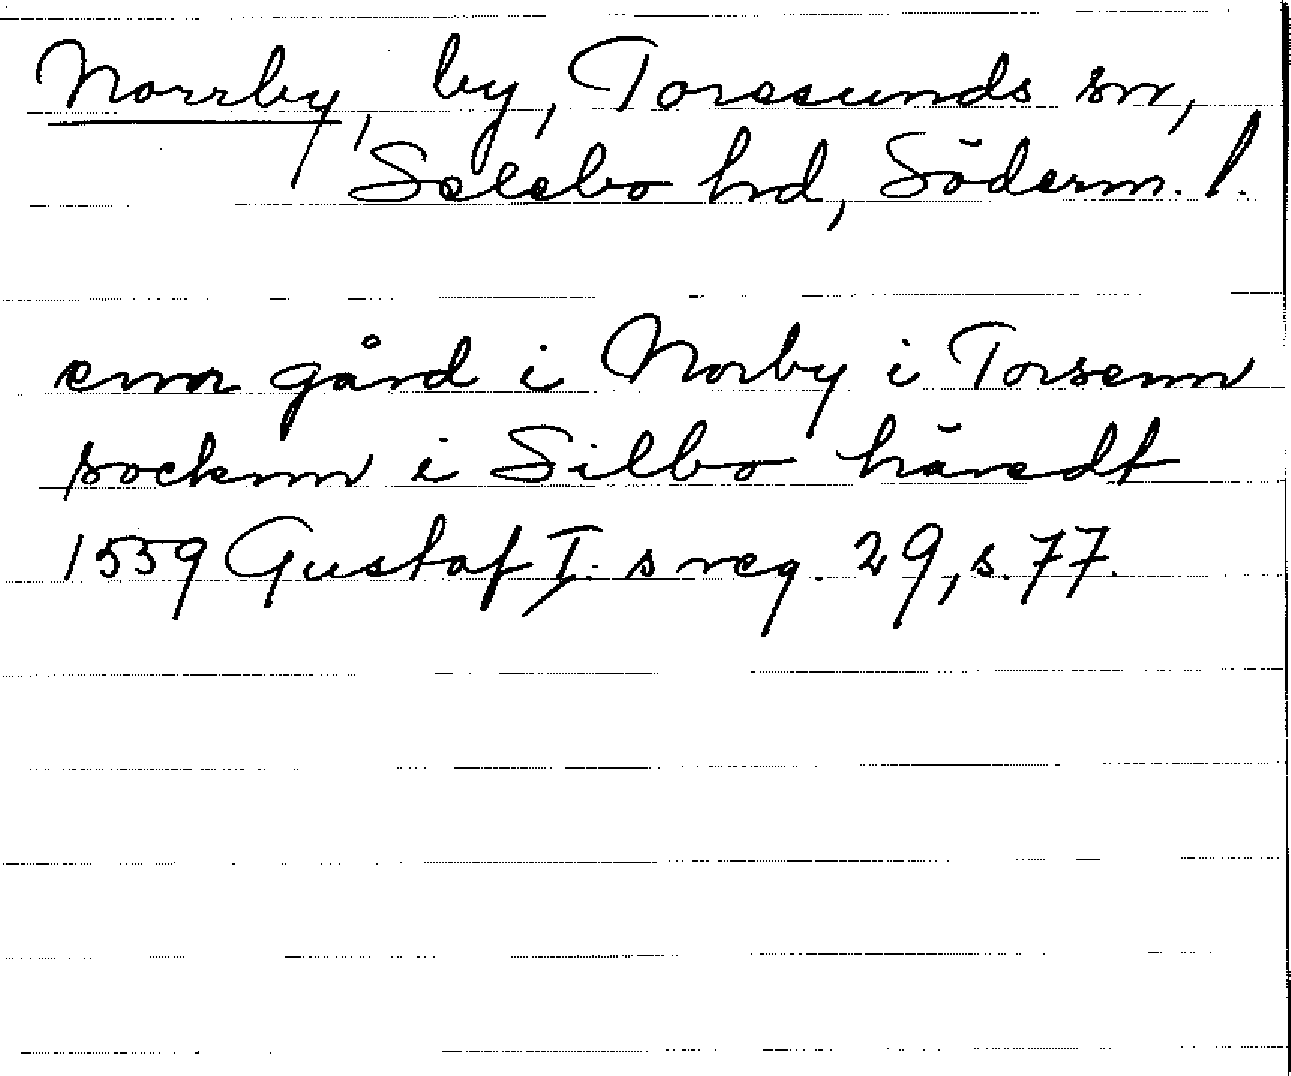 Norrby, by, Toresunds sn,
Selebo hd, Söderm. l.
enn gård i Norby i Torsenn
socknn i Silbo häredt
1559 Gustaf I:s reg. 29, s. 77.